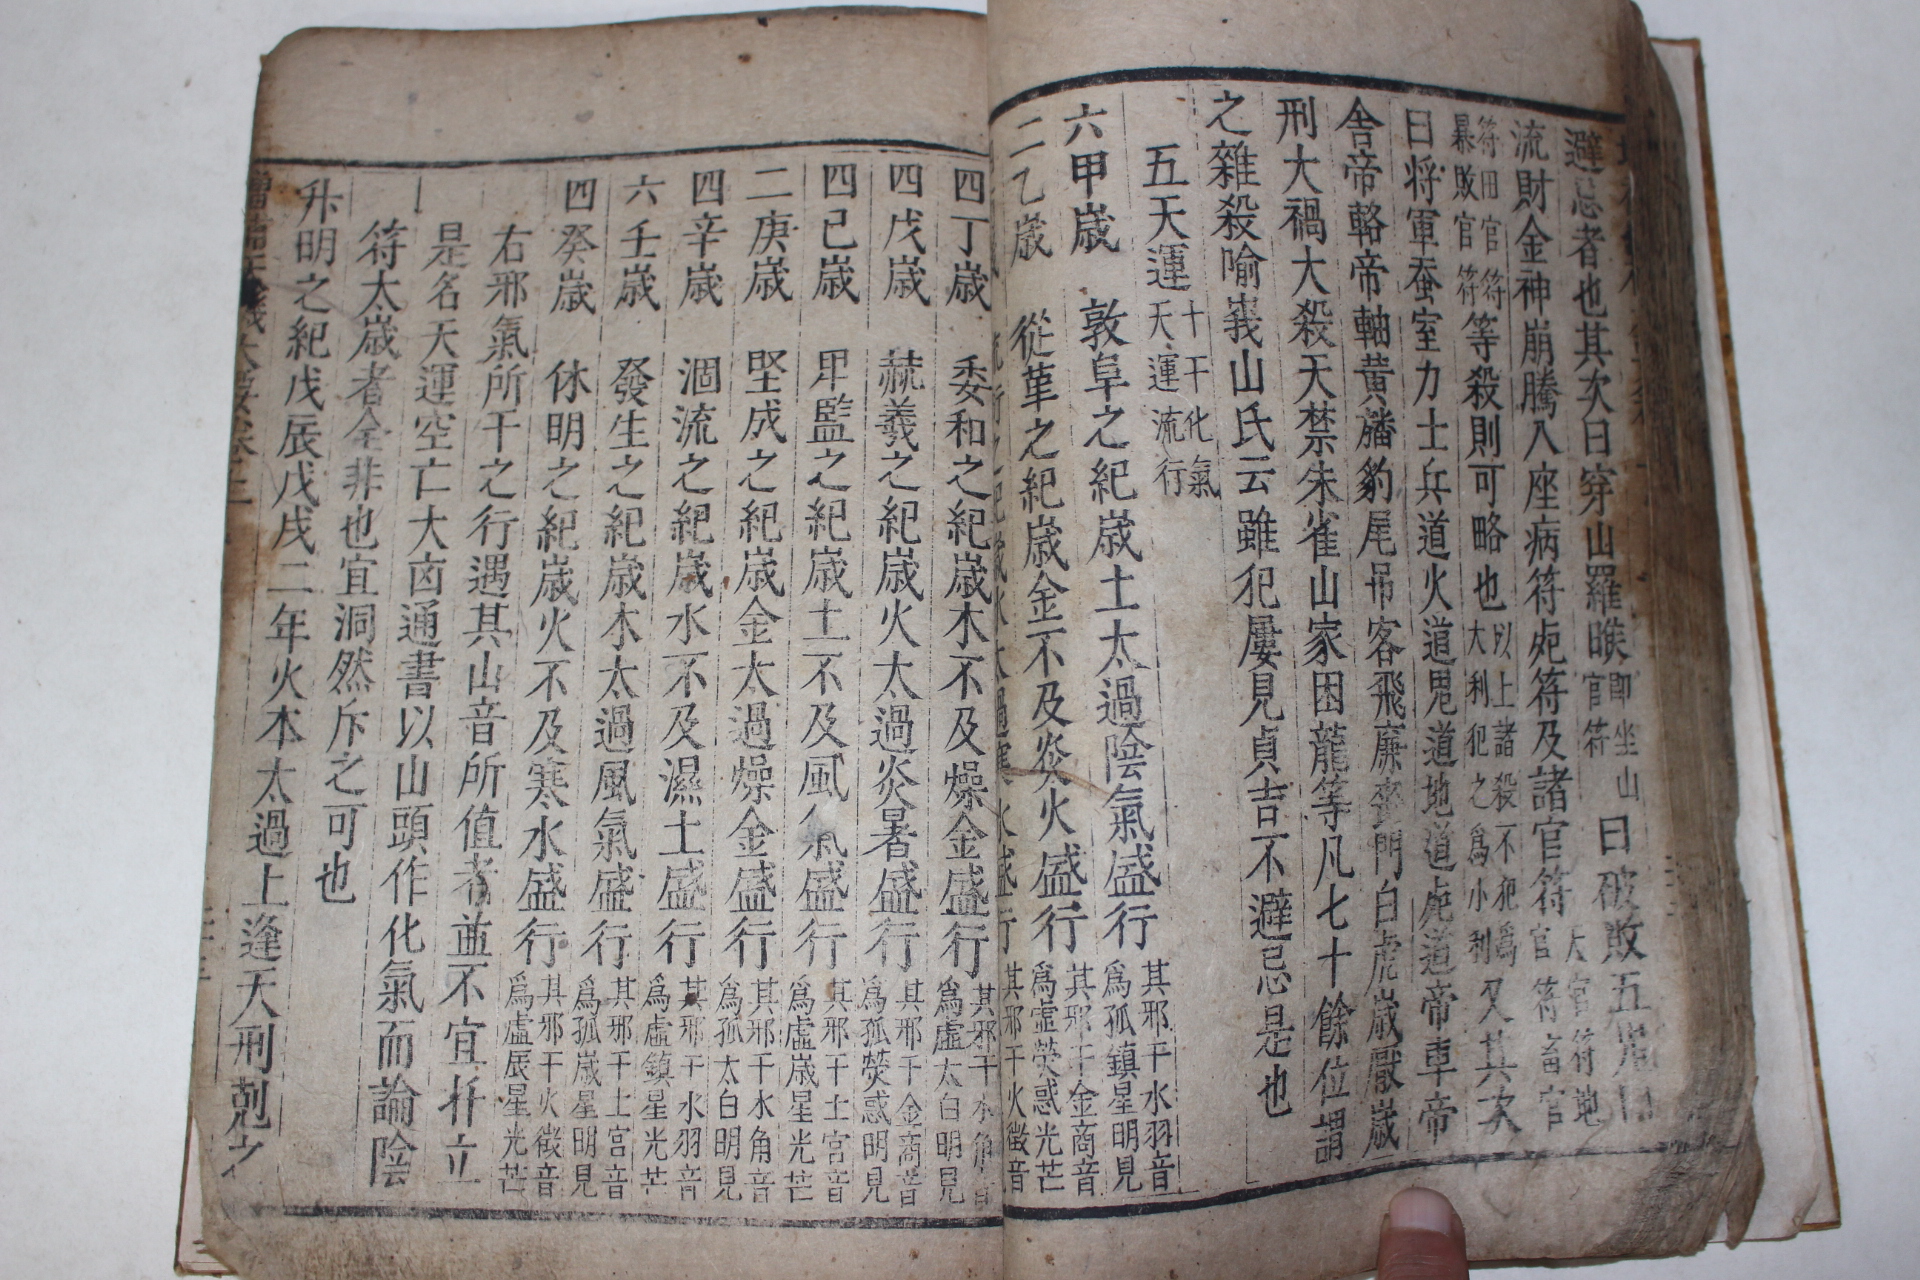 避忌者也其次曰穿山羅睺即坐山官符曰破敗五鬼曰
流財金神崩騰入座病符死符及諸官符大官符地官符畜官
符田官符暴敗官符等殺則可略也以上諸殺不犯爲大利犯之爲小利又其次
曰将軍蚕室力士兵道火道鬼道地道虎道帝車帝
舎帝輅帝軸黄旛豹尾吊客飛廉喪門白虎歳厭歳
刑大禍大殺天禁朱雀山家困龍等凡七十餘位謂
之雜殺喻峩山氏云雖犯屢見貞吉不避忌是也
五天運十干化氣天運流行
六甲歳 敦阜之紀歳土太過陰氣盛行其邪干水羽音爲孤鎮星明見
二乙歳 從革之紀歳金不及炎火盛行其邪干金商音爲虚熒惑光芒
四丁歳 委和之紀歳木不及燥金盛行其邪干木角音爲虚太白明見
四戊歳 赫羲之紀歳火太過炎暑盛行其邪干金商音爲孤熒惑明見
四己歳 卑監之紀歳土不及風氣盛行其邪干土宮音爲虚歳星光芒
二庚歳 堅成之紀歳金太過燥金盛行其邪干木角音爲孤太白明見
四辛歳 涸流之紀歳水不及濕土盛行其邪干水羽音爲虚鎮星光芒
六壬歳 發生之紀歳木太過風氣盛行其邪干土宮音爲孤歳星明見
四癸歳 休明之紀歳火不及寒水盛行其邪干火徵音爲虚辰星光芒
右邪氣所干之行遇其山音所值者並不宜扦立
是名天運空亡大凶通書以山頭作化氣而論陰
符太歳者全非也宜洞然斥之可也
升明之紀戊辰戊戌二年火本太過上逢天刑剋之